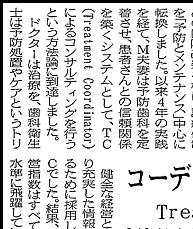 を予防とメンテナンス中心に
転換しました。以来4年の実践
を経て、M夫妻は予防歯科を定
着させ、患者さんとの信頼関係
を築くシステムとして、TC
(Treatment Coordinator)
によるコンサルティングを行う
という方法論に到達しました。
ドクターは治療を、歯科衛生
士は予防処置やケアというトリ
コーデ
Trea
健全な経営と
り充実した情報
るために採用し
Cでした。結果、
営指数はすべて
水準に飛躍して